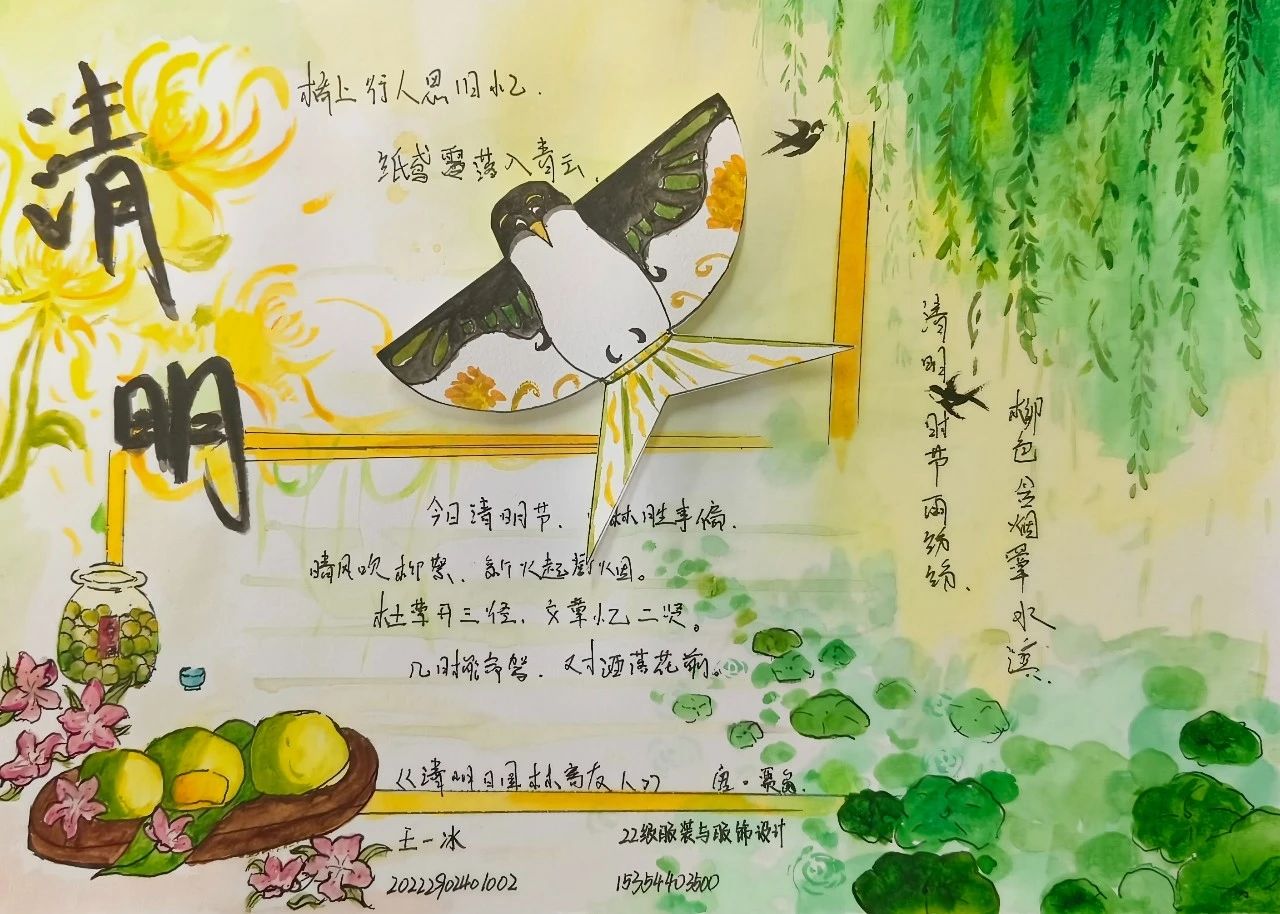 清明
桥上行人思旧忆.
纸鸢零落入青云.
清明时节雨纷纷.
柳色含烟罩水溟.
今日清明节. 林胜事偏.
晴风吹柳絮. 新火起 烟。
杜草开三径. 文章忆二贤。
几时 命驾. 对酒落花前。
《清明日园林寄友人》 唐。贾岛.
王一冰
22级服装与服饰设计
20222902401002
15354403500